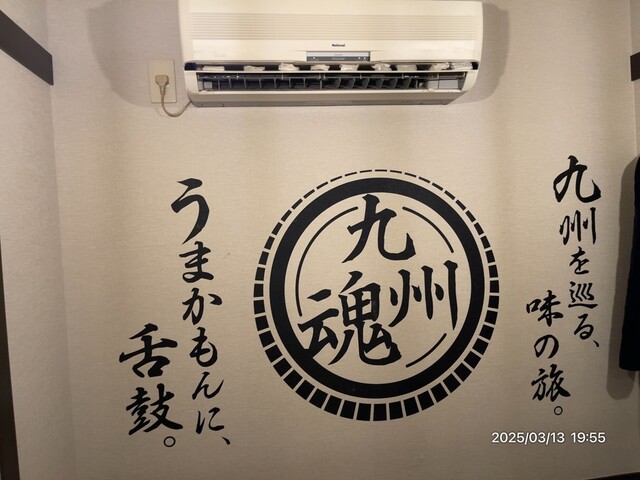 National
九州を巡る、
味の旅。
九州魂
うまかもんに、
舌鼓。
2025/03/13 19:55